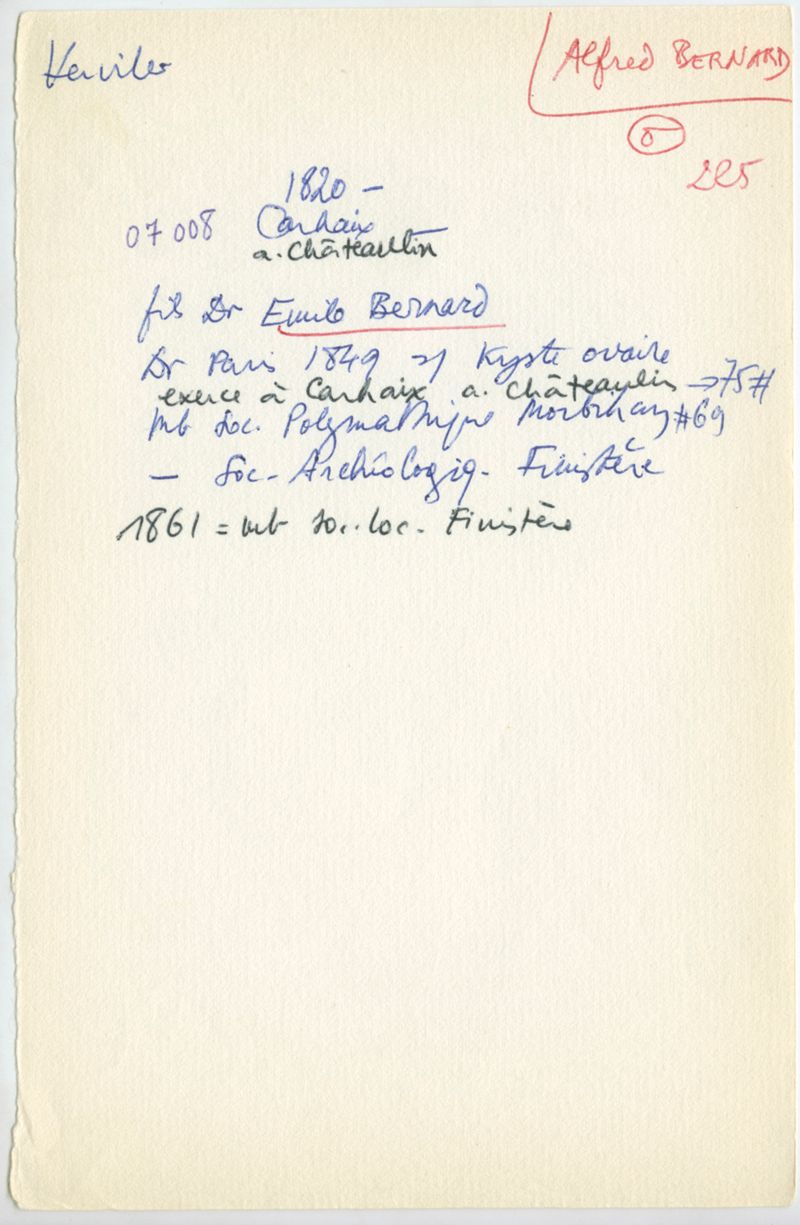 Kerviler
Alfred BERNARD
225
1820 -
07 008 Carhaix
a. Châteaulin
fils Dr Emile Bernard
Dr Paris 1849 Kyste ovaire
exerce à Carhaix a. Châteaulin → 75 #
mb Soc. Polymathique Morbihan #69
— Soc. Archéologiq. Finistère
1861 = mb soc. loc. Finistère